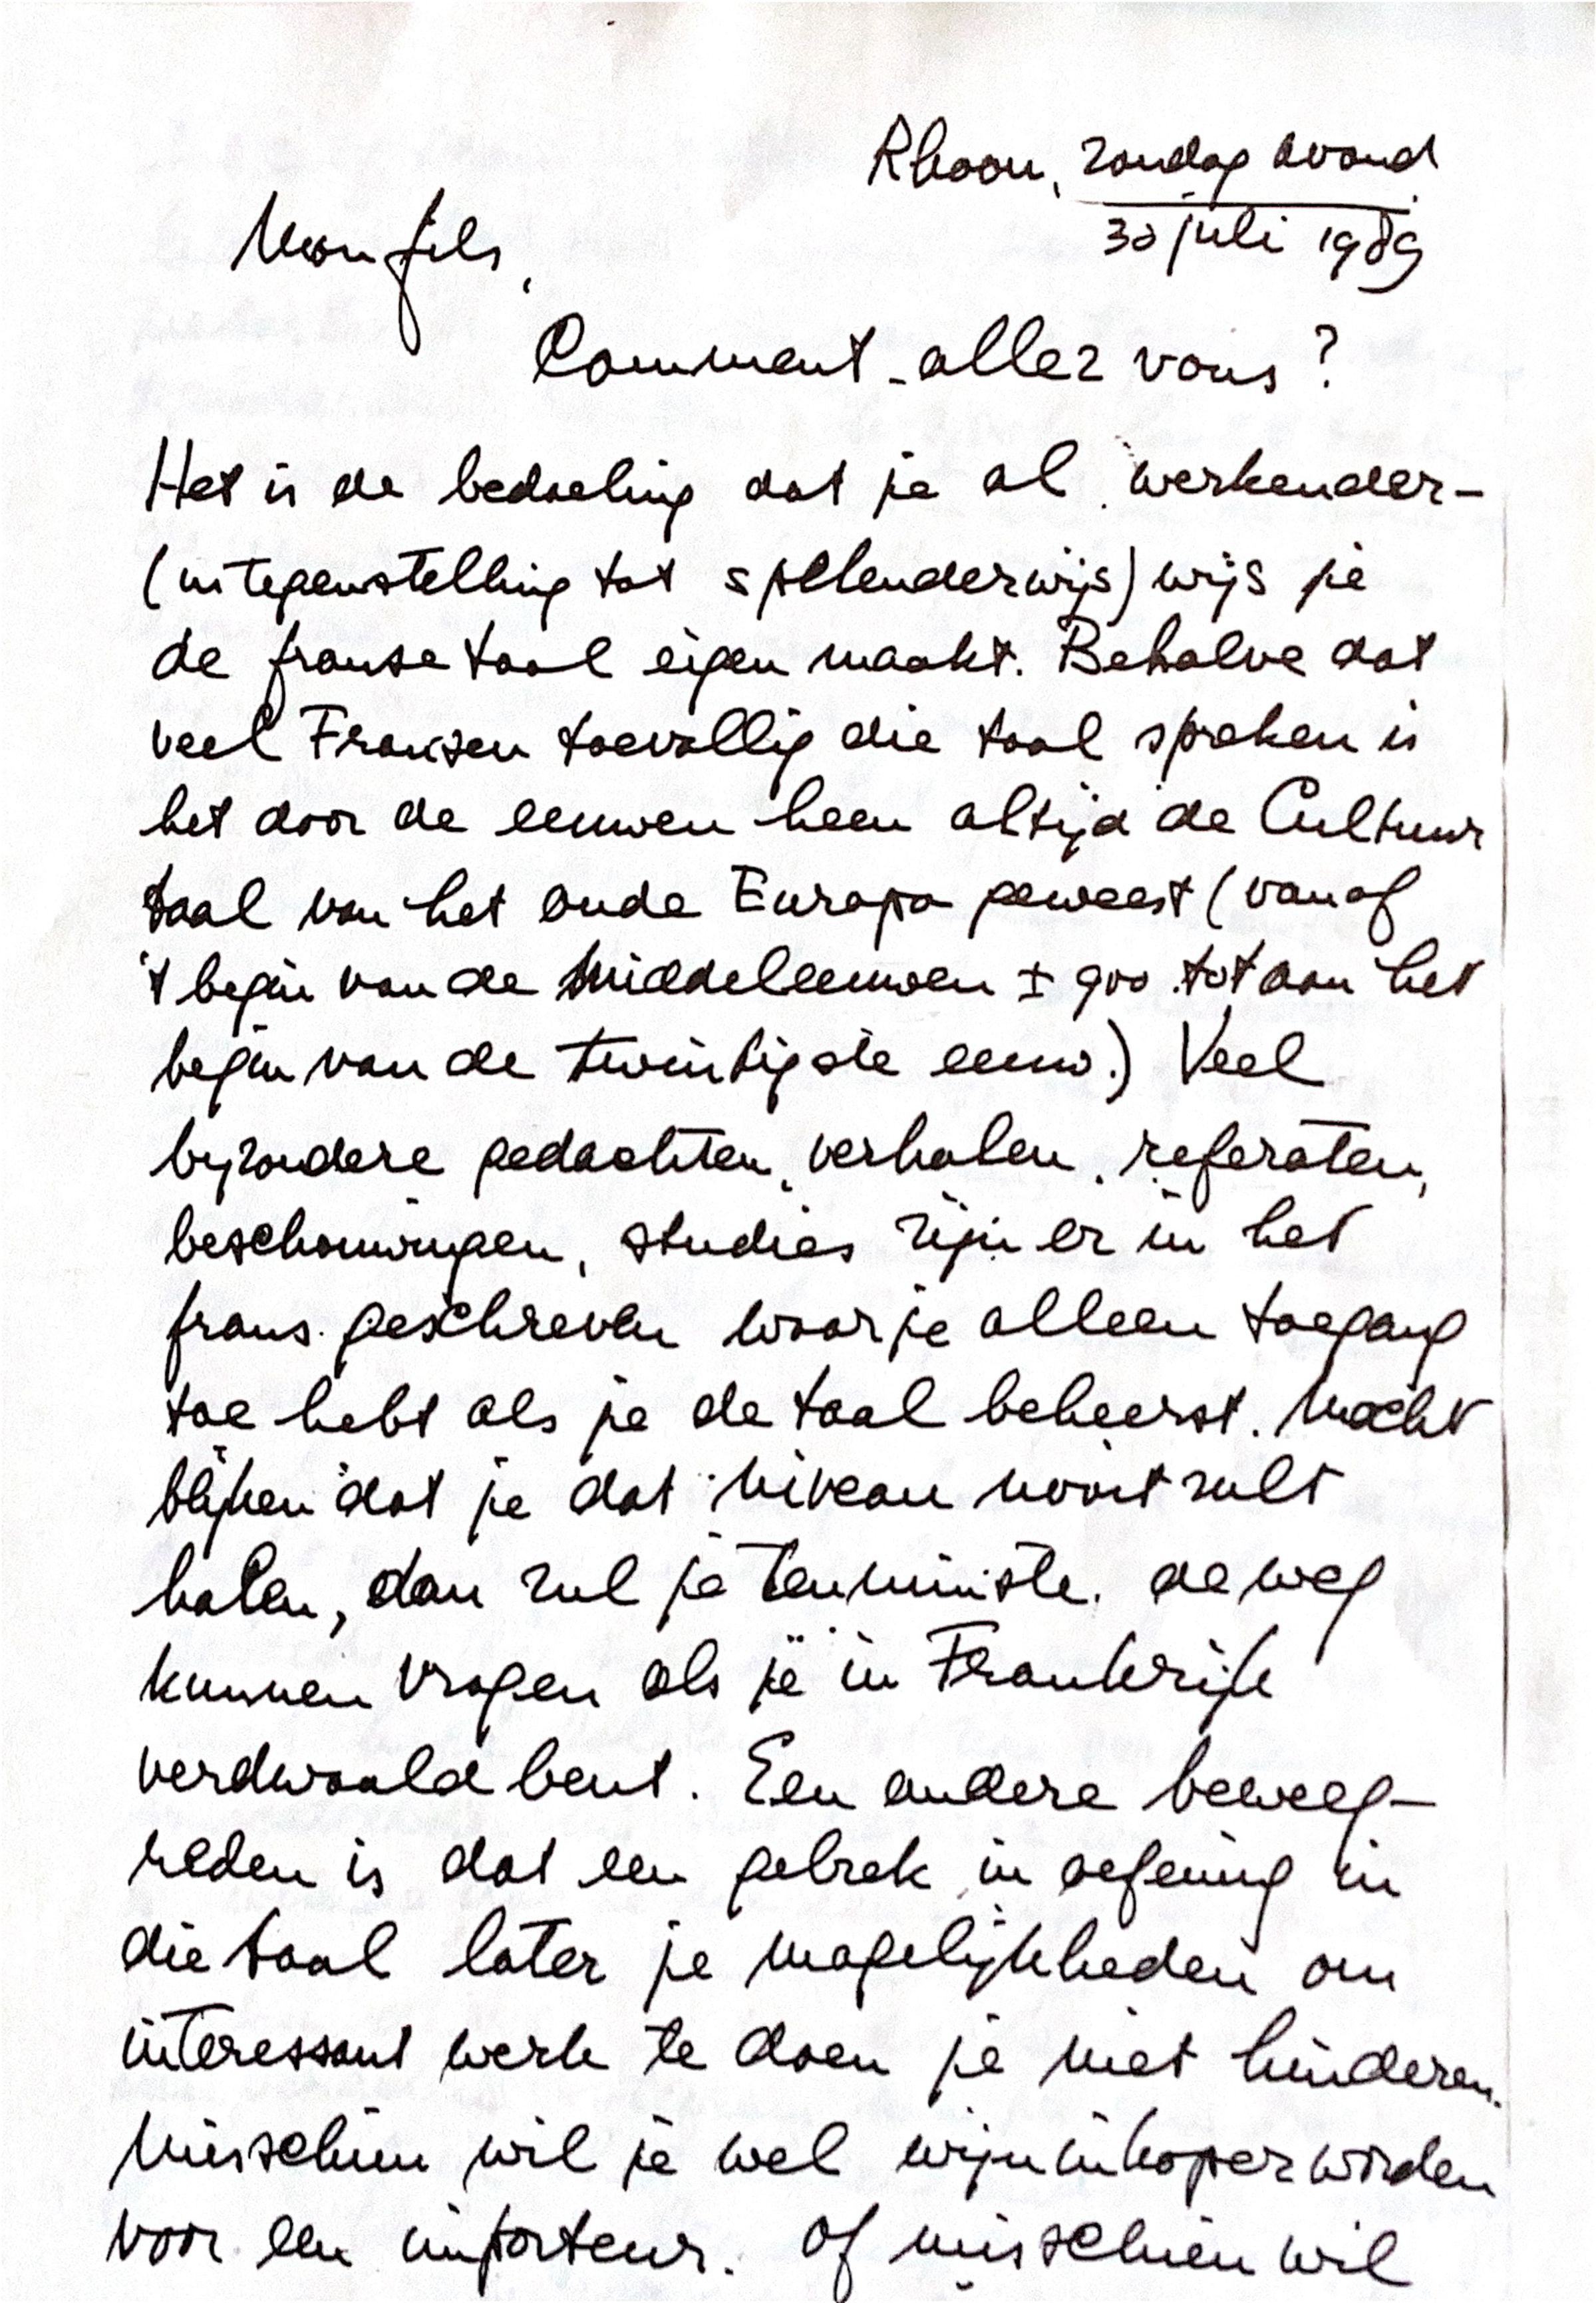 Rhoon, zondag avond
30 juli 1989
Mon fils,
Comment-allez vous?
Het is de bedoeling dat je al werkender-
(in tegenstelling tot spelenderwijs) wijs je
de franse taal eigen maakt. Behalve dat
veel Fransen toevallig die taal spreken is
het door de eeuwen heen altijd de Cultuur
taal van het oude Europa geweest (vanaf
't begin van de Middeleeuwen ± 900 tot aan het
begin van de twintigste eeuw.) Veel
bijzondere gedachten, verhalen, referaten,
beschouwingen, studies zijn er in het
frans geschreven waar je alleen toegang
toe hebt als je de taal beheerst. Mocht
blijken dat je dat niveau nooit zult
halen, dan zul je tenminste de weg
kunnen vragen als je in Frankrijk
verdwaald bent. Een andere beweeg-
reden is dat een gebrek in oefening in
die taal later je mogelijkheden om
interessant werk te doen je niet hinderen.
Misschien wil je wel wijninkoper worden
voor een importeur. Of misschien wil